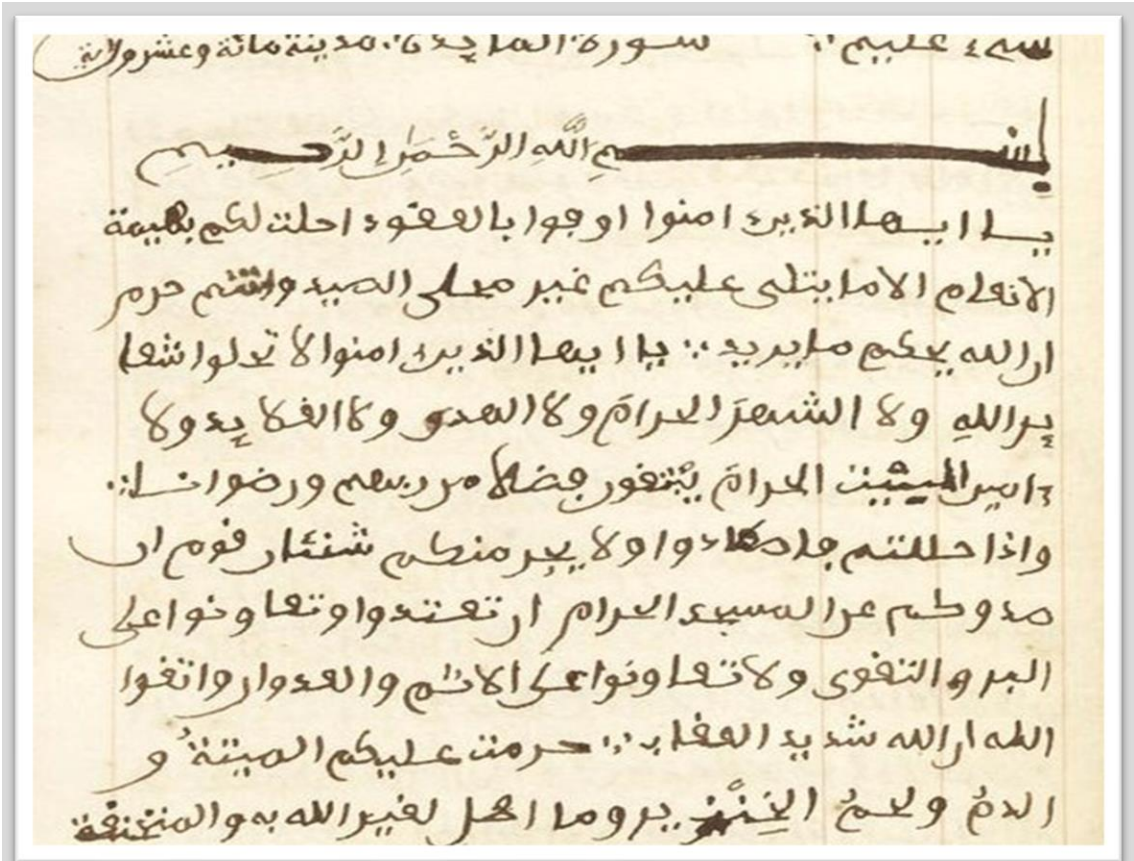 شيء عليم ∴ سورة المايدة مدينة مائة وعشرون اية
بِسْمِ اللَّهِ الرَّحْمَٰنِ الرَّحِيمِ
يا ايها الذين امنوا اوفوا بالعقود احلت لكم بهيمة
الانعام الا ما يتلى عليكم غير محلى الصيد وانتم حرم
ان الله يحكم ما يريد ∴ يا ايها الذين امنوا لا تحلوا شعا
ير اللهِ ولا الشهرَ الحرامَ ولا الهدي ولا القلايد ولا
ءامين البيت الحرامَ يبْتغون فضلا من ربهم ورضوانا ∴
واذا حللتم فاصطادوا ولا يجرمنكم شنئان قوم ان
صدوكم عن المسجد الحرام ان تعتدوا وتعاونوا على
البر والتقوى ولا تعاونوا على الاثم والعدوان واتقوا
الله ان الله شديد العقاب ∴ حرمت عليكم الميتةُ و
الدمُ ولحمُ الخِنْزير وما اهل لغير الله به والمنخنقة